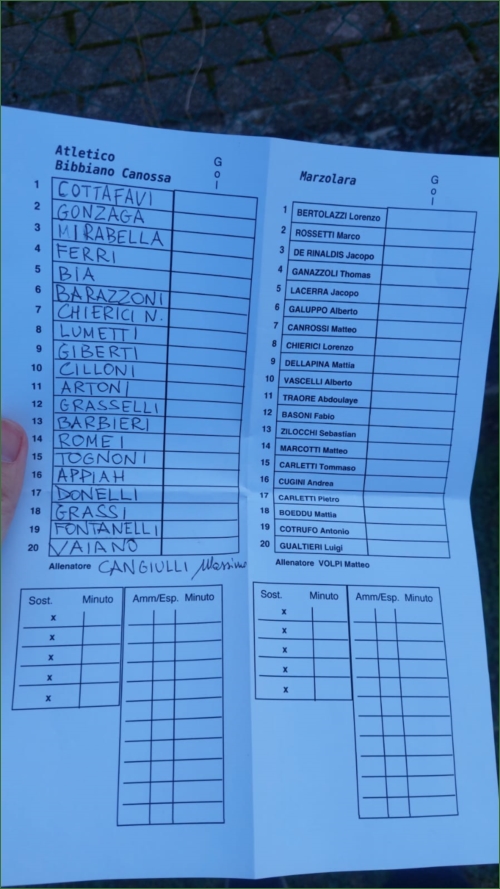 Atletico
Bibbiano Canossa
Gol
1 COTTAFAVI
2 GONZAGA
3 MIRABELLA
4 FERRI
5 BIA
6 BARAZZONI
7 CHIERICI N.
8 LUMETTI
9 GIBERTI
10 CILLONI
11 ARTONI
12 GRASSELLI
13 BARBIERI
14 ROMEI
15 TOGNONI
16 APPIAH
17 DONELLI
18 GRASSI
19 FONTANELLI
20 VAIANO
Allenatore CANGIULLI Massimo
Sost. Minuto
x
x
x
x
x
Amm/Esp. Minuto
Marzolara
Gol
1 BERTOLAZZI Lorenzo
2 ROSSETTI Marco
3 DE RINALDIS Jacopo
4 GANAZZOLI Thomas
5 LACERRA Jacopo
6 GALUPPO Alberto
7 CANROSSI Matteo
8 CHIERICI Lorenzo
9 DELLAPINA Mattia
10 VASCELLI Alberto
11 TRAORE Abdoulaye
12 BASONI Fabio
13 ZILOCCHI Sebastian
14 MARCOTTI Matteo
15 CARLETTI Tommaso
16 CUGINI Andrea
17 CARLETTI Pietro
18 BOEDDU Mattia
19 COTRUFO Antonio
20 GUALTIERI Luigi
Allenatore VOLPI Matteo
Sost. Minuto
x
x
x
x
x
Amm/Esp. Minuto